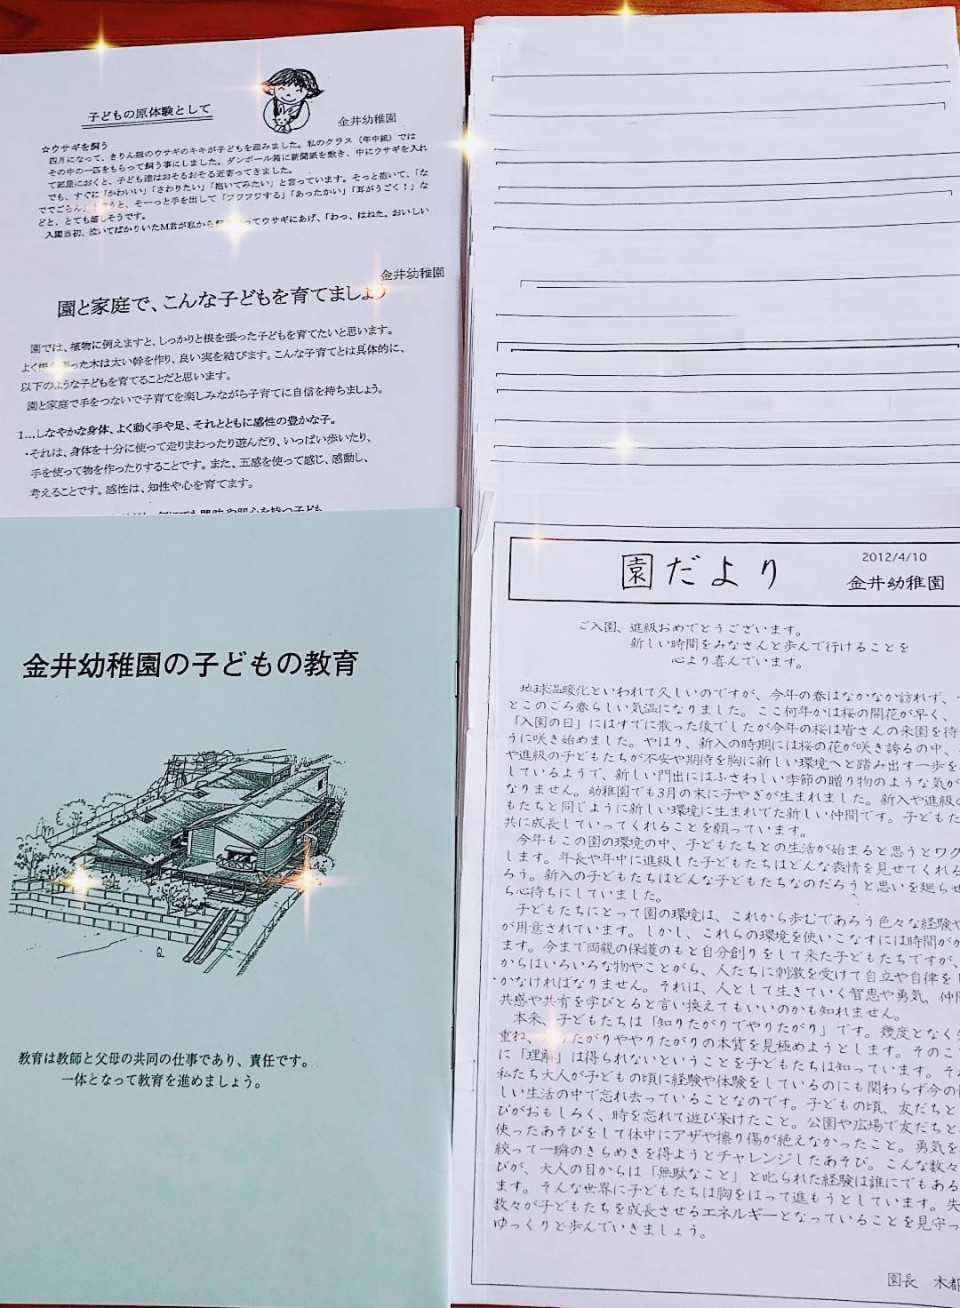 子どもの原体験として
金井幼稚園
☆ウサギを飼う
四月になって、きりん組のウサギのキキが子どもを産みました。私のクラス（年中組）では
その中の一匹をもらって飼う事にしました。ダンボール箱に新聞紙を敷き、中にウサギを入れ
て部屋におくと、子ども達はおそるおそる近寄ってきました。
でも、すぐに「かわいい」「さわりたい」「抱いてみたい」と言っています。そっと抱いて、「な
でてごらん」と言うと、そーっと手を出して「フワフワする」「あったかい」「耳がうごく！」な
どと、とても嬉しそうです。
入園当初、泣いてばかりいたM君が私から ってウサギにあげ、「わっ、はねた。おいしい
金井幼稚園
園と家庭で、こんな子どもを育てましょう
園では、植物に例えますと、しっかりと根を張った子どもを育てたいと思います。
よく根を張った木は太い幹を作り、良い実を結びます。こんな子育てとは具体的に、
以下のような子どもを育てることだと思います。
園と家庭で手をつないで子育てを楽しみながら子育てに自信を持ちましょう。
1…しなやかな身体、よく動く手や足、それとともに感性の豊かな子。
・それは、身体を十分に使って走りまわったり遊んだり、いっぱい歩いたり、
手を使って物を作ったりすることです。また、五感を使って感じ、感動し、
考えることです。感性は、知性や心を育てます。
金井幼稚園の子どもの教育
教育は教師と父母の共同の仕事であり、責任です。
一体となって教育を進めましょう。
園だより
2012/4/10
金井幼稚園
ご入園、進級おめでとうございます。
新しい時間をみなさんと歩んで行けることを
心より喜んでいます。
地球温暖化といわれて久しいのですが、今年の春はなかなか訪れず、
とこのごろ春らしい気温になりました。ここ何年かは桜の開花が早く、
「入園の日」にはすでに散った後でしたが今年の桜は皆さんの来園を待
うに咲き始めました。やはり、新入の時期には桜の花が咲き誇るの中、
や進級の子どもたちが不安や期待を胸に新しい環境へと踏み出す一歩を
しているようで、新しい門出にはふさわしい季節の贈り物のような気が
なりません。幼稚園でも3月の末に子やぎが生まれました。新入や進級の
もたちと同じように新しい環境に生まれでた新しい仲間です。子どもた
共に成長していってくれることを願っています。
今年もこの園の環境の中、子どもたちとの生活が始まると思うとワク
します。年長や年中に進級した子どもたちはどんな表情を見せてくれる
ろう。新入の子どもたちはどんな子どもたちなのだろうと思いを廻らせ
ら心待ちにしていました。
子どもたちにとって園の環境は、これから歩むであろう色々な経験や
が用意されています。しかし、これらの環境を使いこなすには時間がか
ます。今まで両親の保護のもと自分創りをして来た子どもたちですが、
からはいろいろな物やことがら、人たちに刺激を受けて自立や自律を
かなければなりません。それは、人として生きていく智恵や勇気、仲間
共感や共有を学びとると言い換えてもいいのかも知れません。
本来、子どもたちは「知りたがりでやりたがり」です。幾度となく
重ね、知りたがりややりたがりの本質を見極めようとします。そのこ
に「理解」は得られないということを子どもたちは知っています。そ
私たち大人が子どもの頃に経験や体験をしているのにも関わらず今の
しい生活の中で忘れ去っていることなのです。子どもの頃、友だちと
びがおもしろく、時を忘れて遊び呆けたこと。公園や広場で友だちと
使ったあそびをして体中にアザや擦り傷が絶えなかったこと。勇気を
絞って一瞬のきらめきを得ようとチャレンジしたあそび。こんな数々
びが、大人の目からは「無駄なこと」と叱られた経験は誰にでもある
ます。そんな世界に子どもたちは胸をはって進もうとしています。失
数々が子どもたちを成長させるエネルギーとなっていることを見守っ
ゆっくりと歩んでいきましょう。
園長 木都